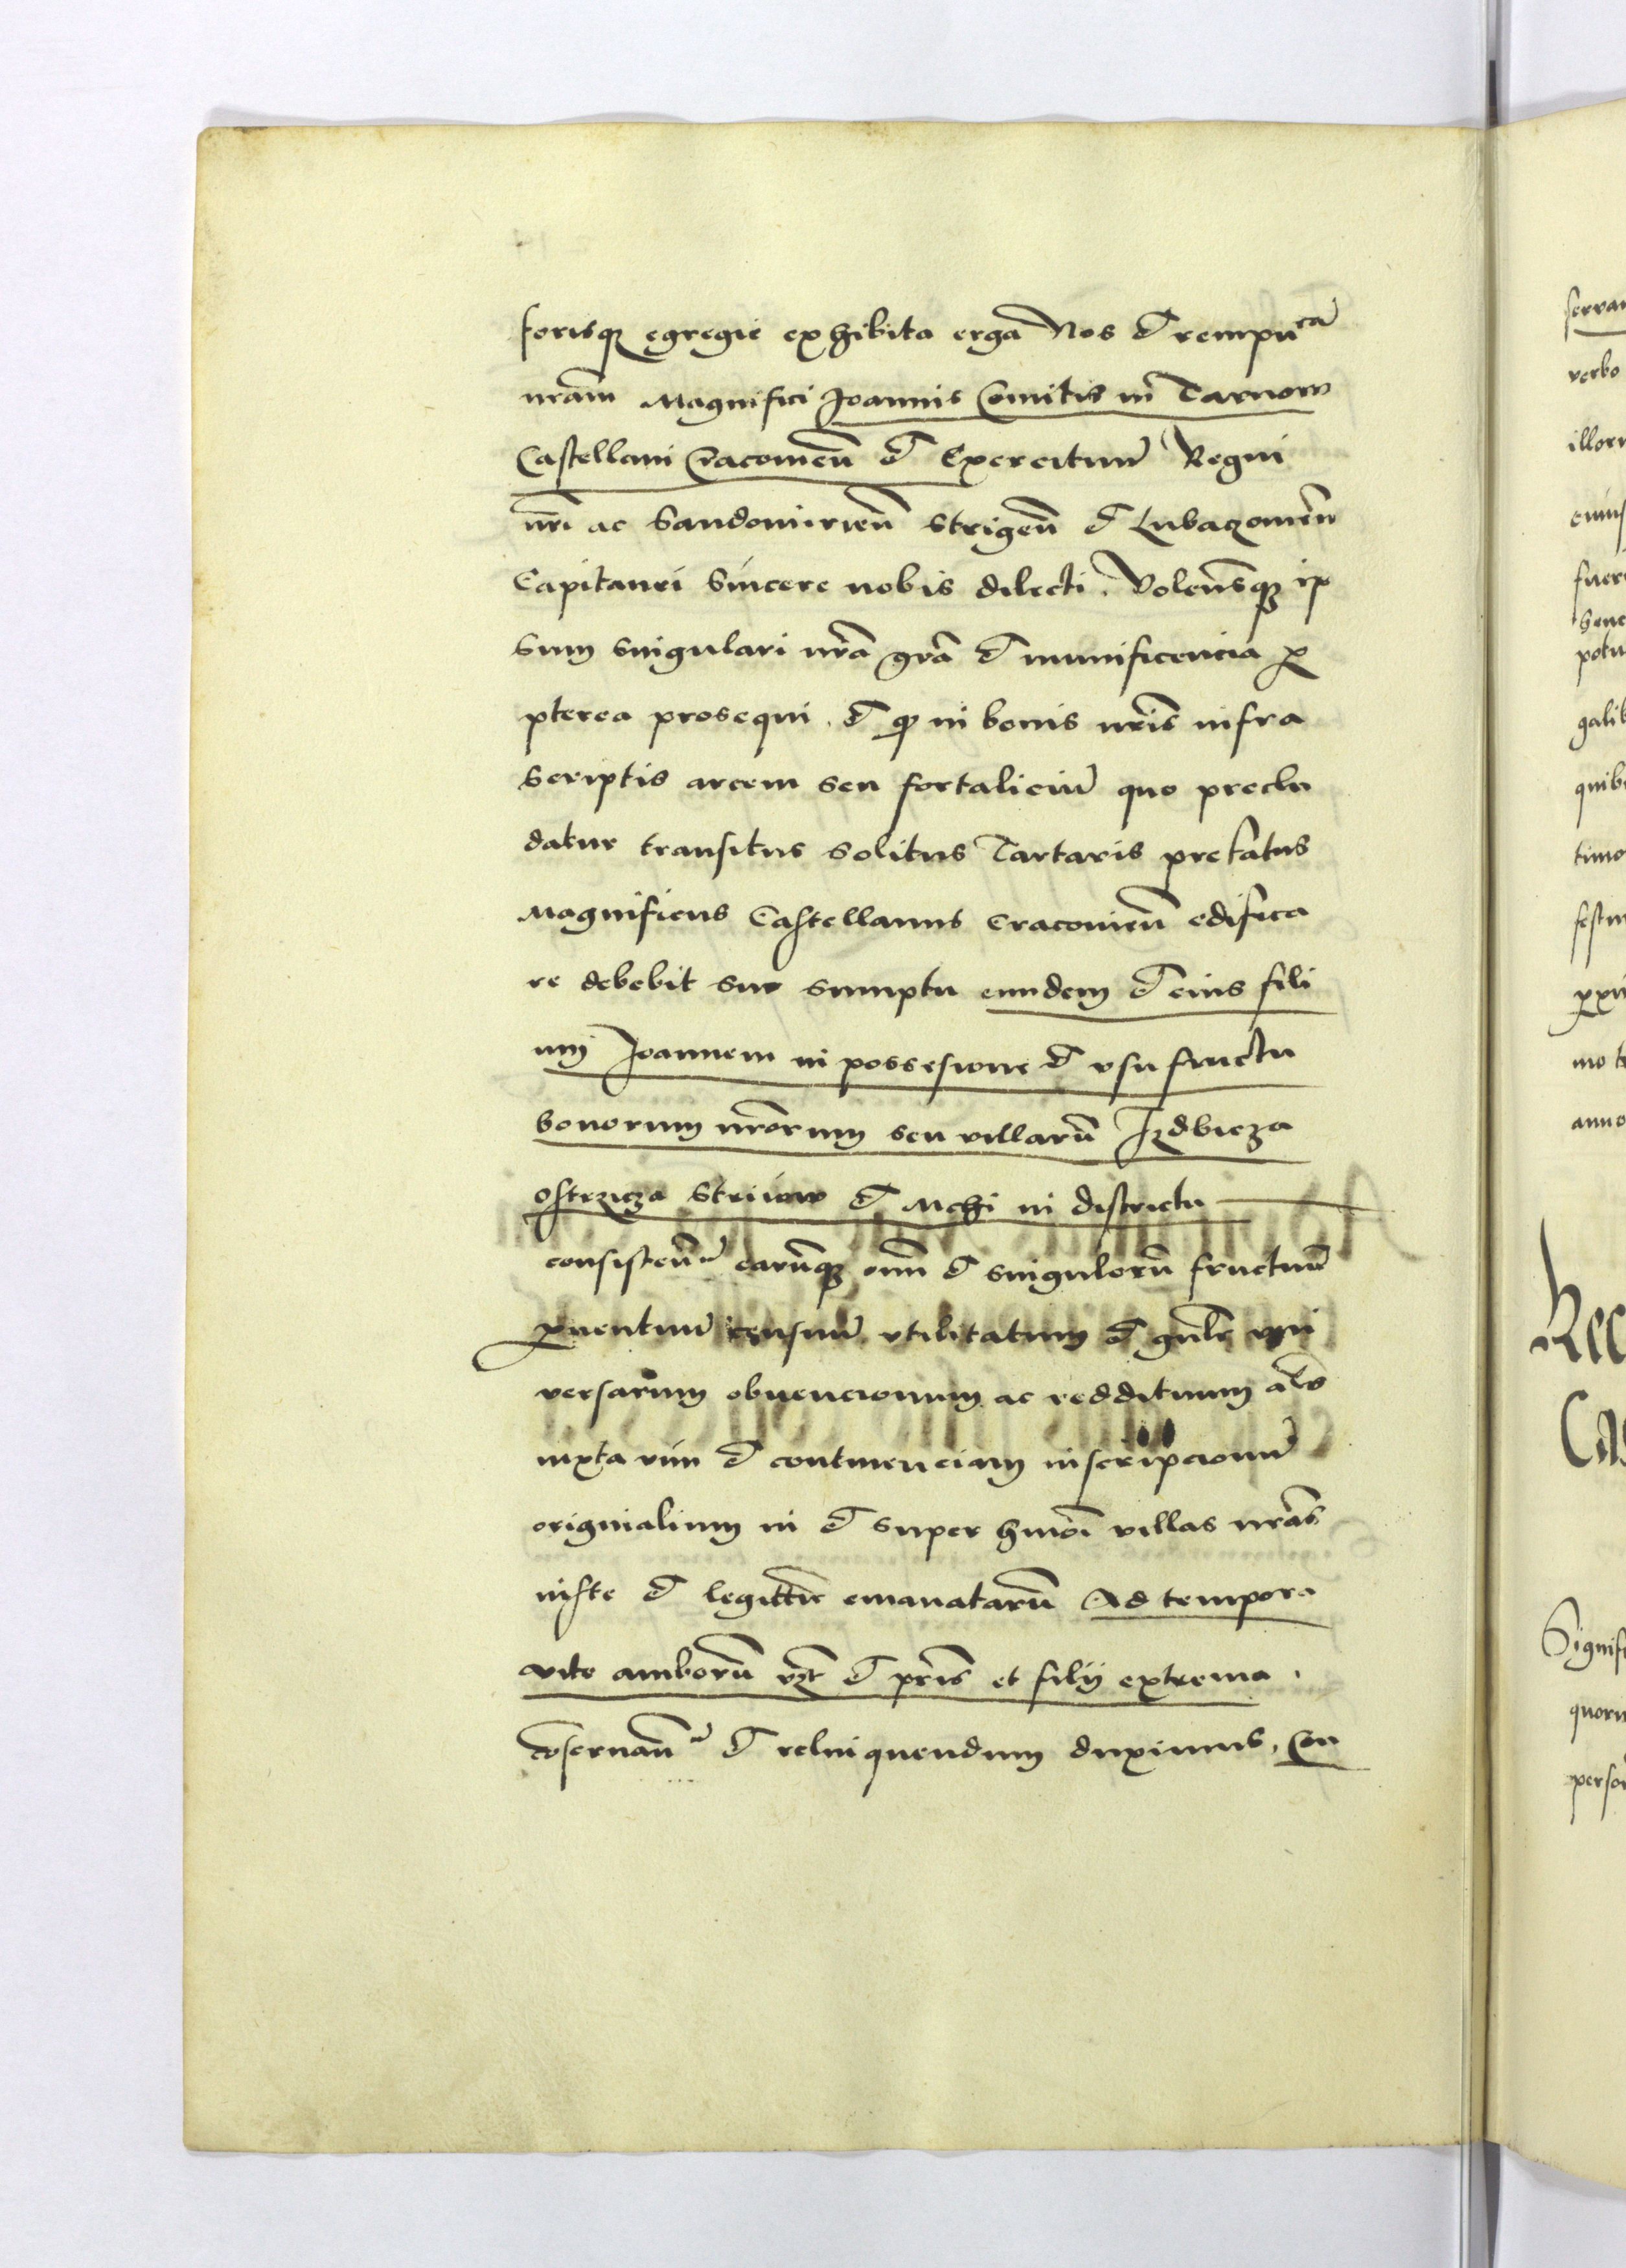 forisq3 egregie exhibita erga Nos et rempu͞ca͞
nr͞am Magnifici Joannis Comitis in Tarnow
Castellani Cracouien͞ et Exercituu͞ Regni
nr͞i ac Sandomirien͞ Strigen͞ et Lubaczouien͞
Capitanei Sincere nobis dilecti. Volensq3 ip
sum singulari nr͞a gr͞a et munificencia ꝓ
pterea prosequi. et ꝙ in bonis nr͞is infra
scriptis arcem seu fortaliciu͞ quo preclu
datur transitus solitus Tartaris prefatus
Magnificus Castellanus Cracouien͞ edifica
re debebit suo sumptu eundem et eius fili
um Joannem in possesione et vsu fructu
bonorum nr͞orum seu villaru͞ Izdbicza
Ostrzicza Striiow et Mchi in districtu
consisten͞ earu͞q3 om͞i et singuloru͞ fructuu͞
ꝓuentuu͞ censuu͞ vtilitatum et gn͞le vni
versarum obuencionum ac reddituum al͞s
iuxta vim et continenciam inscripcionu͞
originalium in et super hmo͞i villas nr͞as
iuste et legittie͞ emanataru͞ Ad tempora
vite amboru͞ vz͞t et pr͞is et filij extrema.
co͞seruan͞ et relinquendum duximus. Con